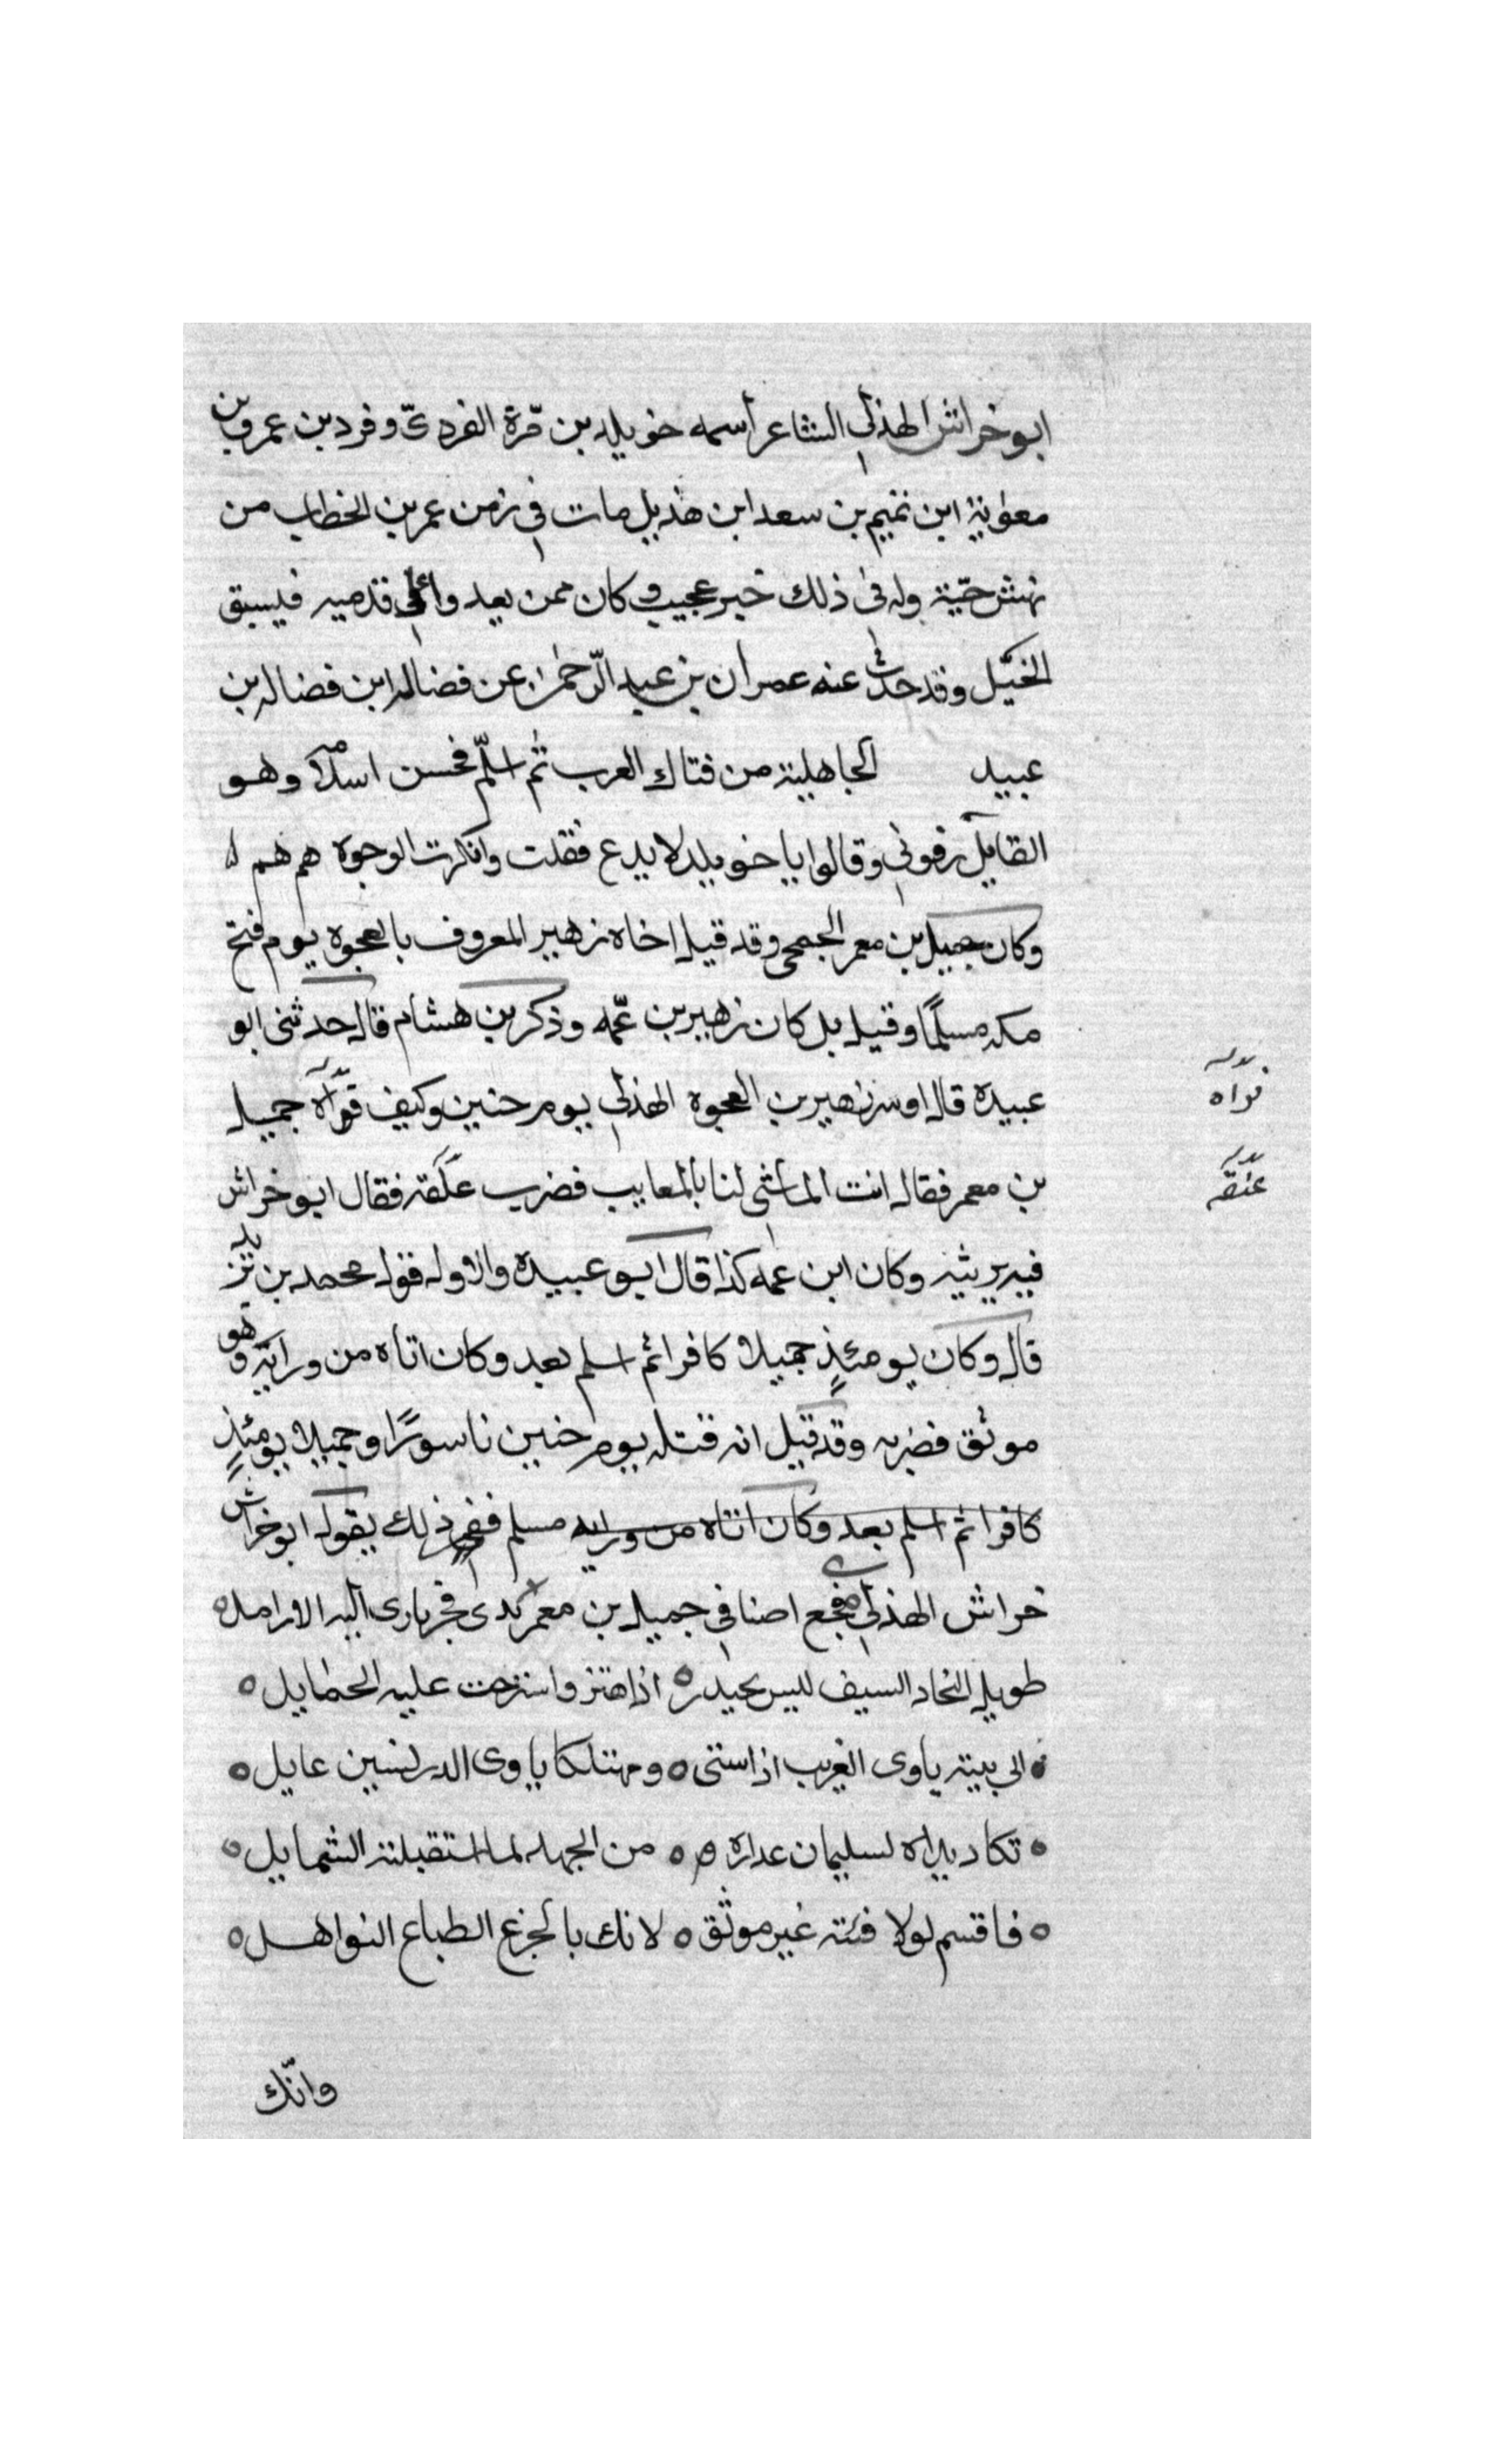 ابو خراش الهذلي الشاعر اسمه خويلد بن مرّة الفردىّ وفرد بن عمرو بن
معوٰية ابن تميم بن سعد ابن هذيل مات في زمن عمر بن الخطاب من
نهش حيّة وله في ذلك خبر عجيب وكان ممن يعدوا على قدميه فيسبق
الخيل وقد حدّث عنه عمران بن عبد الرّحمٰن عن فضاله ابن فضاله بن
عبيد الجاهلية من فتاك العرب ثم اسلم فحسن اسلامه وهو
القايل رفوني وقالوا يا خويلد لا يدع فقلت وانكرت الوجوه هم هم
وكان جميل بن معمر الجمحى وقد قيل اخاه زهير المعروف بالعجوة يوم فتح
مكه مسلمًا وقيل بل كان زهير بن عمّه وذكر بن هشام قال حدثنى ابو
عبيدة قال اوسر زهير بن العجوة الهذلي يوم حنين وكيف قوّاه جميل
بن معمر فقال انت الماشى لنا بالمعايب فضرب علقه فقال ابو خراش
فيه يرثيه وكان ابن عمه كذا قال ابو عبيدة والاول قول محمد بن يزيد
قال وكان يومئذٍ جميلا كافرا ثم اسلم بعد وكان اتاه من ورايه وهو
موثق فضربه وقد قيل انه قتله يوم حنين ناسورًا وجميلا يومئذٍ
كافرا ثم اسلم بعد وكان اتاه من ورايه مسلم ففى ذلك يقول ابو خراش
خراش الهذلي فجع اصنافي جميل بن معمر بذى فجر ياوى اليه الارامل
طويل النجاد السيف ليس بحيدر اذا هتز واسترخت عليه الحمايل
الى بيته ياوى الغريب اذا ستى ومهتلكا ياوى الدرلسين عايل
تكاد يداه لسليمان عداره من الجهل لما استقبلته الشمايل
فاقسم لولا فئته غير موثق لانك بالجزع الطباع النواهل
وانّك
قواه
عنقه